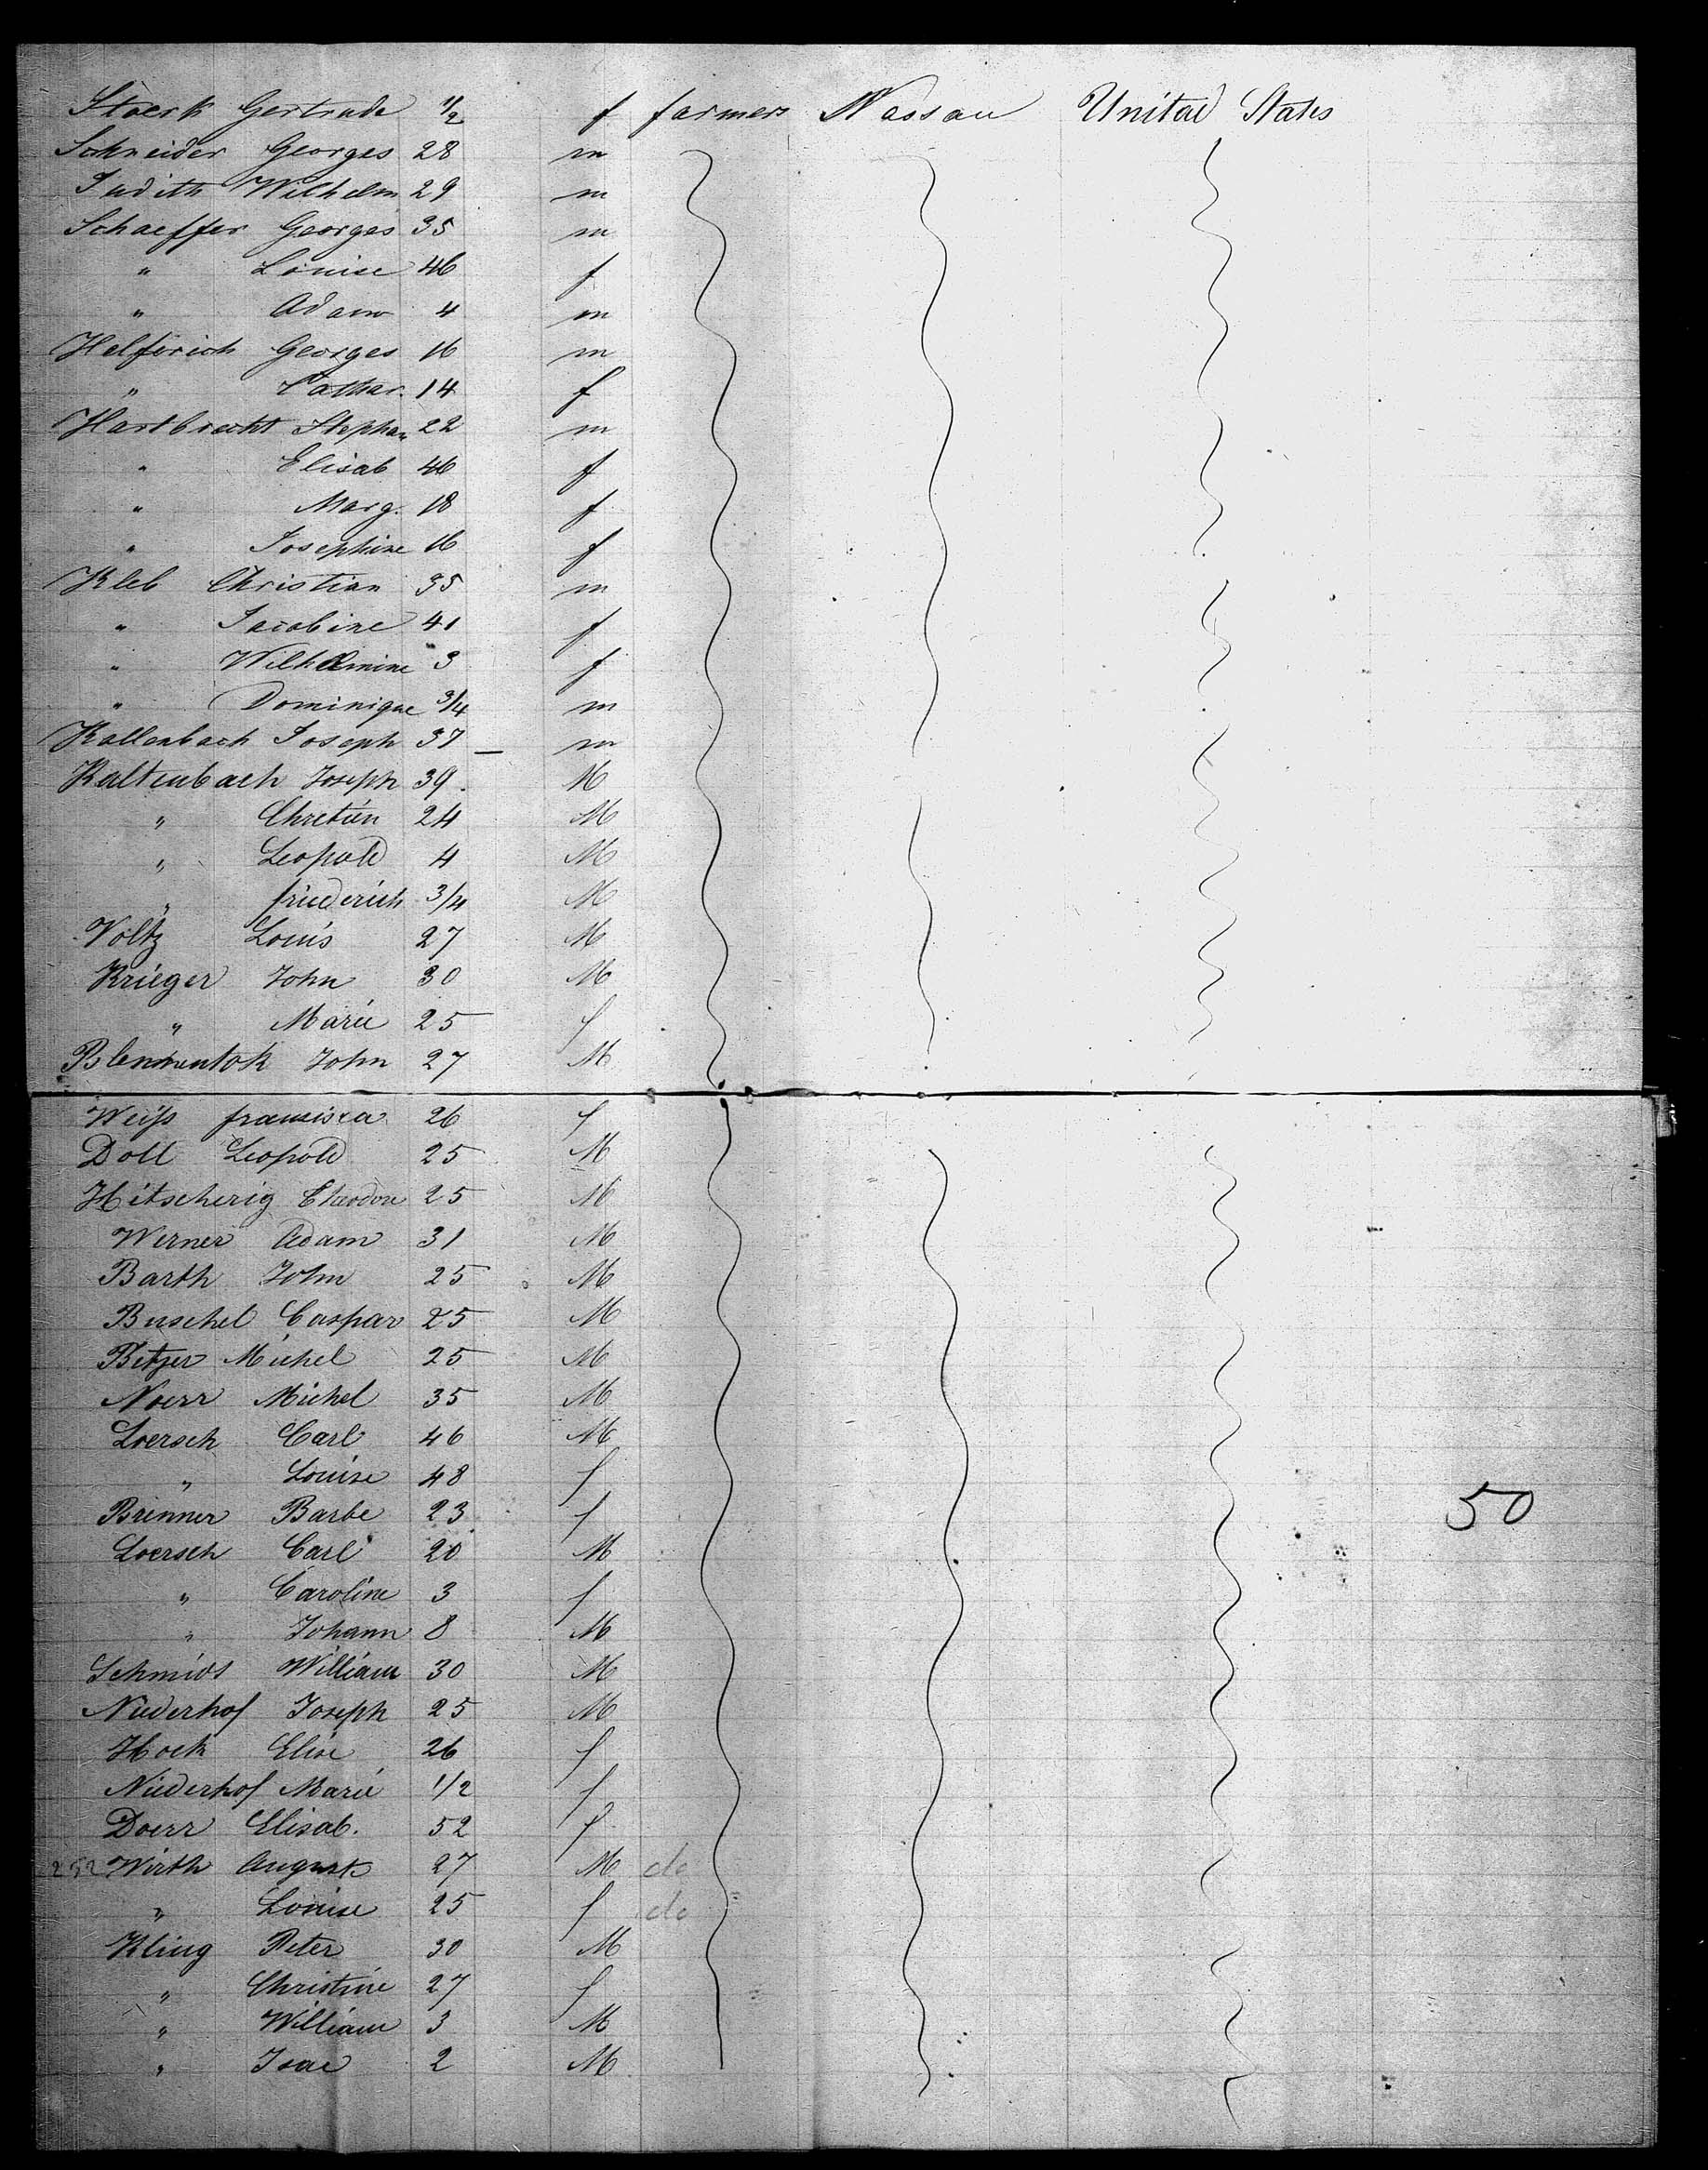 Stoerk Gertrude 1/2 f farmers Nassau United States
Schneider Georges 28 m
Judith Wilhelm 29 m
Schaeffer Georges 35 m
" Louise 46 f
" Adam 4 m
Helfirich Georges 16 m
" Cathar. 14 f
Hartbrecht Stephan 22 m
" Elisab 46 f
" Marg. 18 f
" Josephine 16 f
Kleb Christian 35 m
" Jacobine 41 f
" Wilhelmine 3 f
" Dominique 3/4 m
Kallenbach Joseph 37 — m
Kaltenbach Joseph 39. M
" Chretien 24 M
" Leopold 4 M
" friederich 3/4 M
Voltz Louis 27 M
Krieger John 30 M
" Marie 25 f
John 27 M
Weiss fransisca 26 f
Doll Leopold 25 M
Hitscherig Theodore 25 M
Werner Adam 31 M
Barth John 25 M
Buschel Caspar 25 M
Betzer Michel 25 M
Noerr Michel 35 M
Loersch Carl 46 M
" Louise 48 f
Brenner Barbe 23 f
50
Loersch Carl 20 M
" Caroline 3 f
" Johann 8 M
Schmidt William 30 M
Niederhof Joseph 25 M
Hock Elise 26 f
Niederhof Marie 1/2 f
Doerr Elisab. 52 f
252 Wirth August 27 M do
" Louise 25 f do
Kling Peter 30 M
" Christine 27 f
" William 3 M
" Isac 2 M